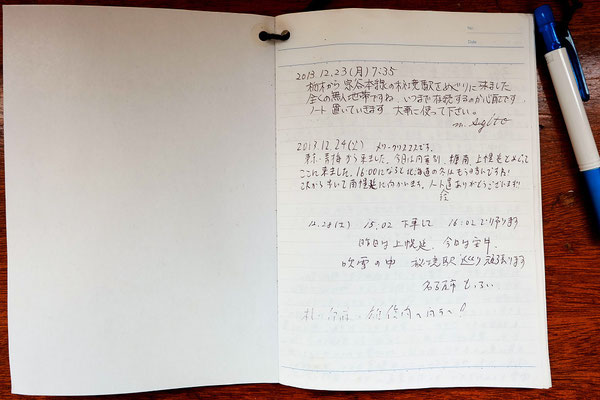 No.
Date
2013.12.23(月) 7:35
栃木から宗谷本線の秘境駅をめぐりに来ました
全くの無人地帯ですね いつまで存続するのか心配です
ノート置いていきます 大事に使って下さい。
2013.12.24(火) メリークリスマスです。
東京・青梅から来ました。今日は内、糠南、上幌延とめぐって
ここに来ました。16:00になると北海道の冬はもうまっ暗ですね!
これから歩いて南幌延に向かいます。ノート設置ありがとうございます!
12.28(土) 15:02 下車して 16:02で帰ります
昨日は上幌延、今日は安牛、
吹雪の中 秘境駅巡り頑張ります
名古屋市